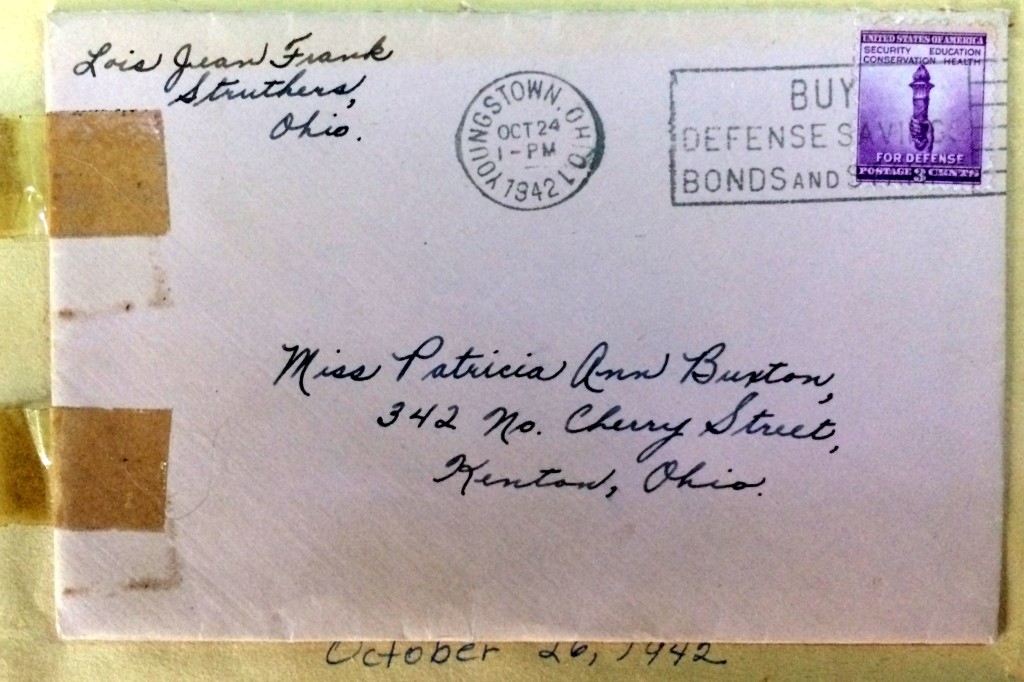 Lois Jean Frank
Struthers,
Ohio.
YOUNGSTOWN, OHIO 1
OCT 24
1 - PM
1942
BUY
DEFENSE SAVINGS
BONDS AND
UNITED STATES OF AMERICA
SECURITY EDUCATION
CONSERVATION HEALTH
FOR DEFENSE
POSTAGE 3 CENTS
Miss Patricia Ann Buxton,
342 No. Cherry Street,
Kenton, Ohio.
October 26, 1942